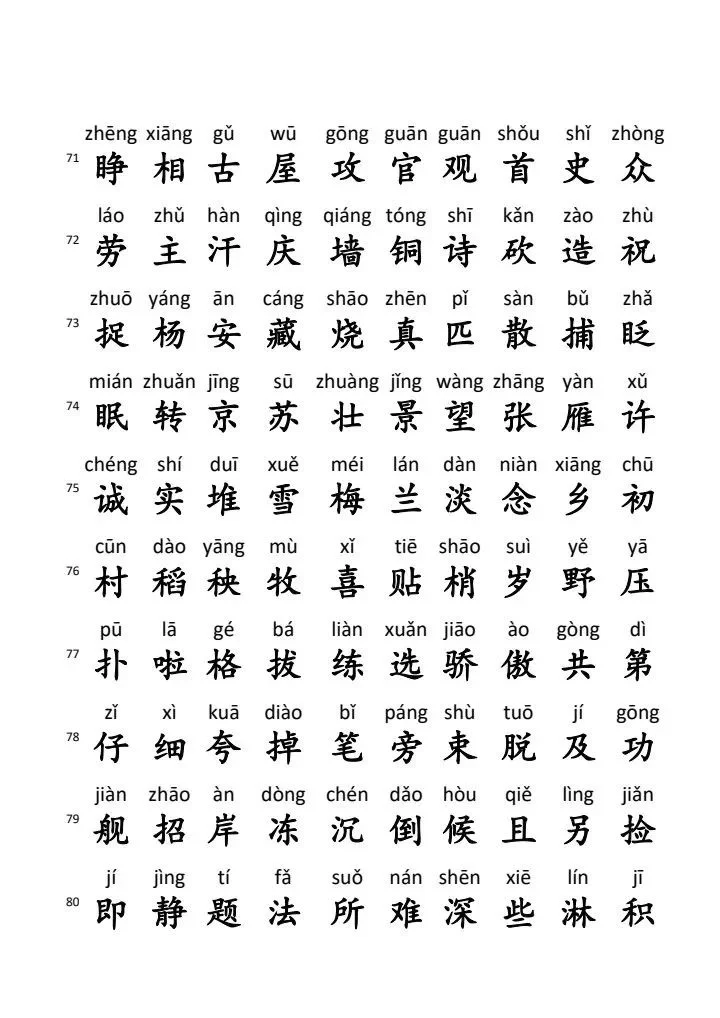 zhēng xiāng gǔ wū gōng guān guān shǒu shǐ zhòng
71 睁 相 古 屋 攻 官 观 首 史 众
láo zhǔ hàn qìng qiáng tóng shī kǎn zào zhù
72 劳 主 汗 庆 墙 铜 诗 砍 造 祝
zhuō yáng ān cáng shāo zhēn pǐ sàn bǔ zhǎ
73 捉 杨 安 藏 烧 真 匹 散 捕 眨
mián zhuǎn jīng sū zhuàng jǐng wàng zhāng yàn xǔ
74 眠 转 京 苏 壮 景 望 张 雁 许
chéng shí duī xuě méi lán dàn niàn xiāng chū
75 诚 实 堆 雪 梅 兰 淡 念 乡 初
cūn dào yāng mù xǐ tiē shāo suì yě yā
76 村 稻 秧 牧 喜 贴 梢 岁 野 压
pū lā gé bá liàn xuǎn jiāo ào gòng dì
77 扑 啦 格 拔 练 选 骄 傲 共 第
zǐ xì kuā diào bǐ páng shù tuō jí gōng
78 仔 细 夸 掉 笔 旁 束 脱 及 功
jiàn zhāo àn dòng chén dǎo hòu qiě lìng jiǎn
79 舰 招 岸 冻 沉 倒 候 且 另 捡
jí jìng tí fǎ suǒ nán shēn xiē lín jī
80 即 静 题 法 所 难 深 些 淋 积